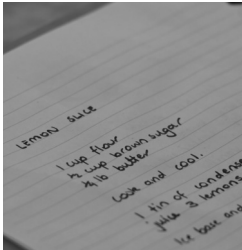 LEMON SLICE
1 cup flour
½ cup brown sugar
¼ lb butter
and cool.
1 tin of condens
juice 3 lemons
ice base and